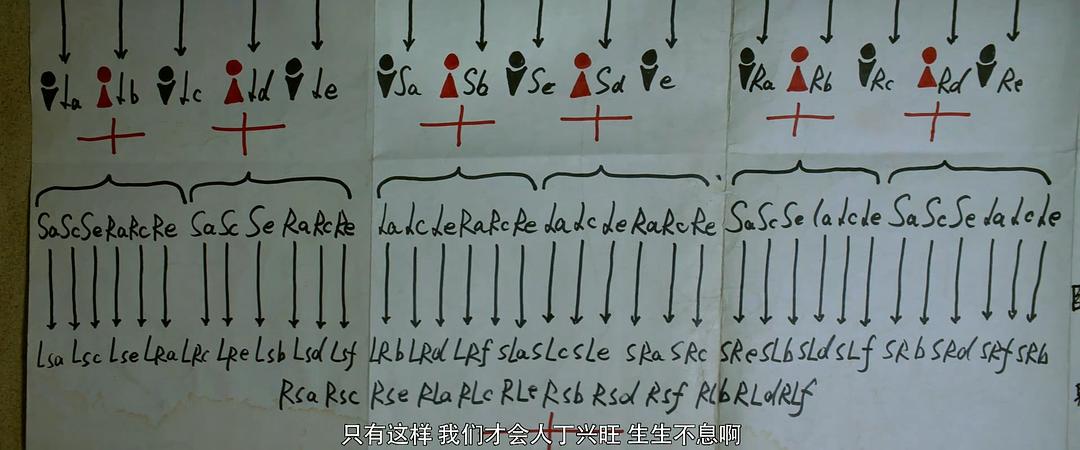 La Lb Lc Ld Le Sa Sb Se Sd e Ra Rb Rc Rd Re
Sa Sc Se Ra Rc Re Sa Sc Se Ra Rc Re La Lc Le Ra Rc Re La Lc Le Ra Rc Re Sa Sc Se La Lc Le Sa Sc Se La Lc Le
Lsa Lsc Lse LRa LRc LRe Lsb Lsd Lsf LRb LRd LRf SLa SLc SLe SRa SRc SRe SLb SLd SLf SRb SRd SRf SRb
Rsa Rsc Rse RLa RLc RLe Rsb Rsd Rsf RLb RLd RLf
只有这样 我们才会人丁兴旺 生生不息啊